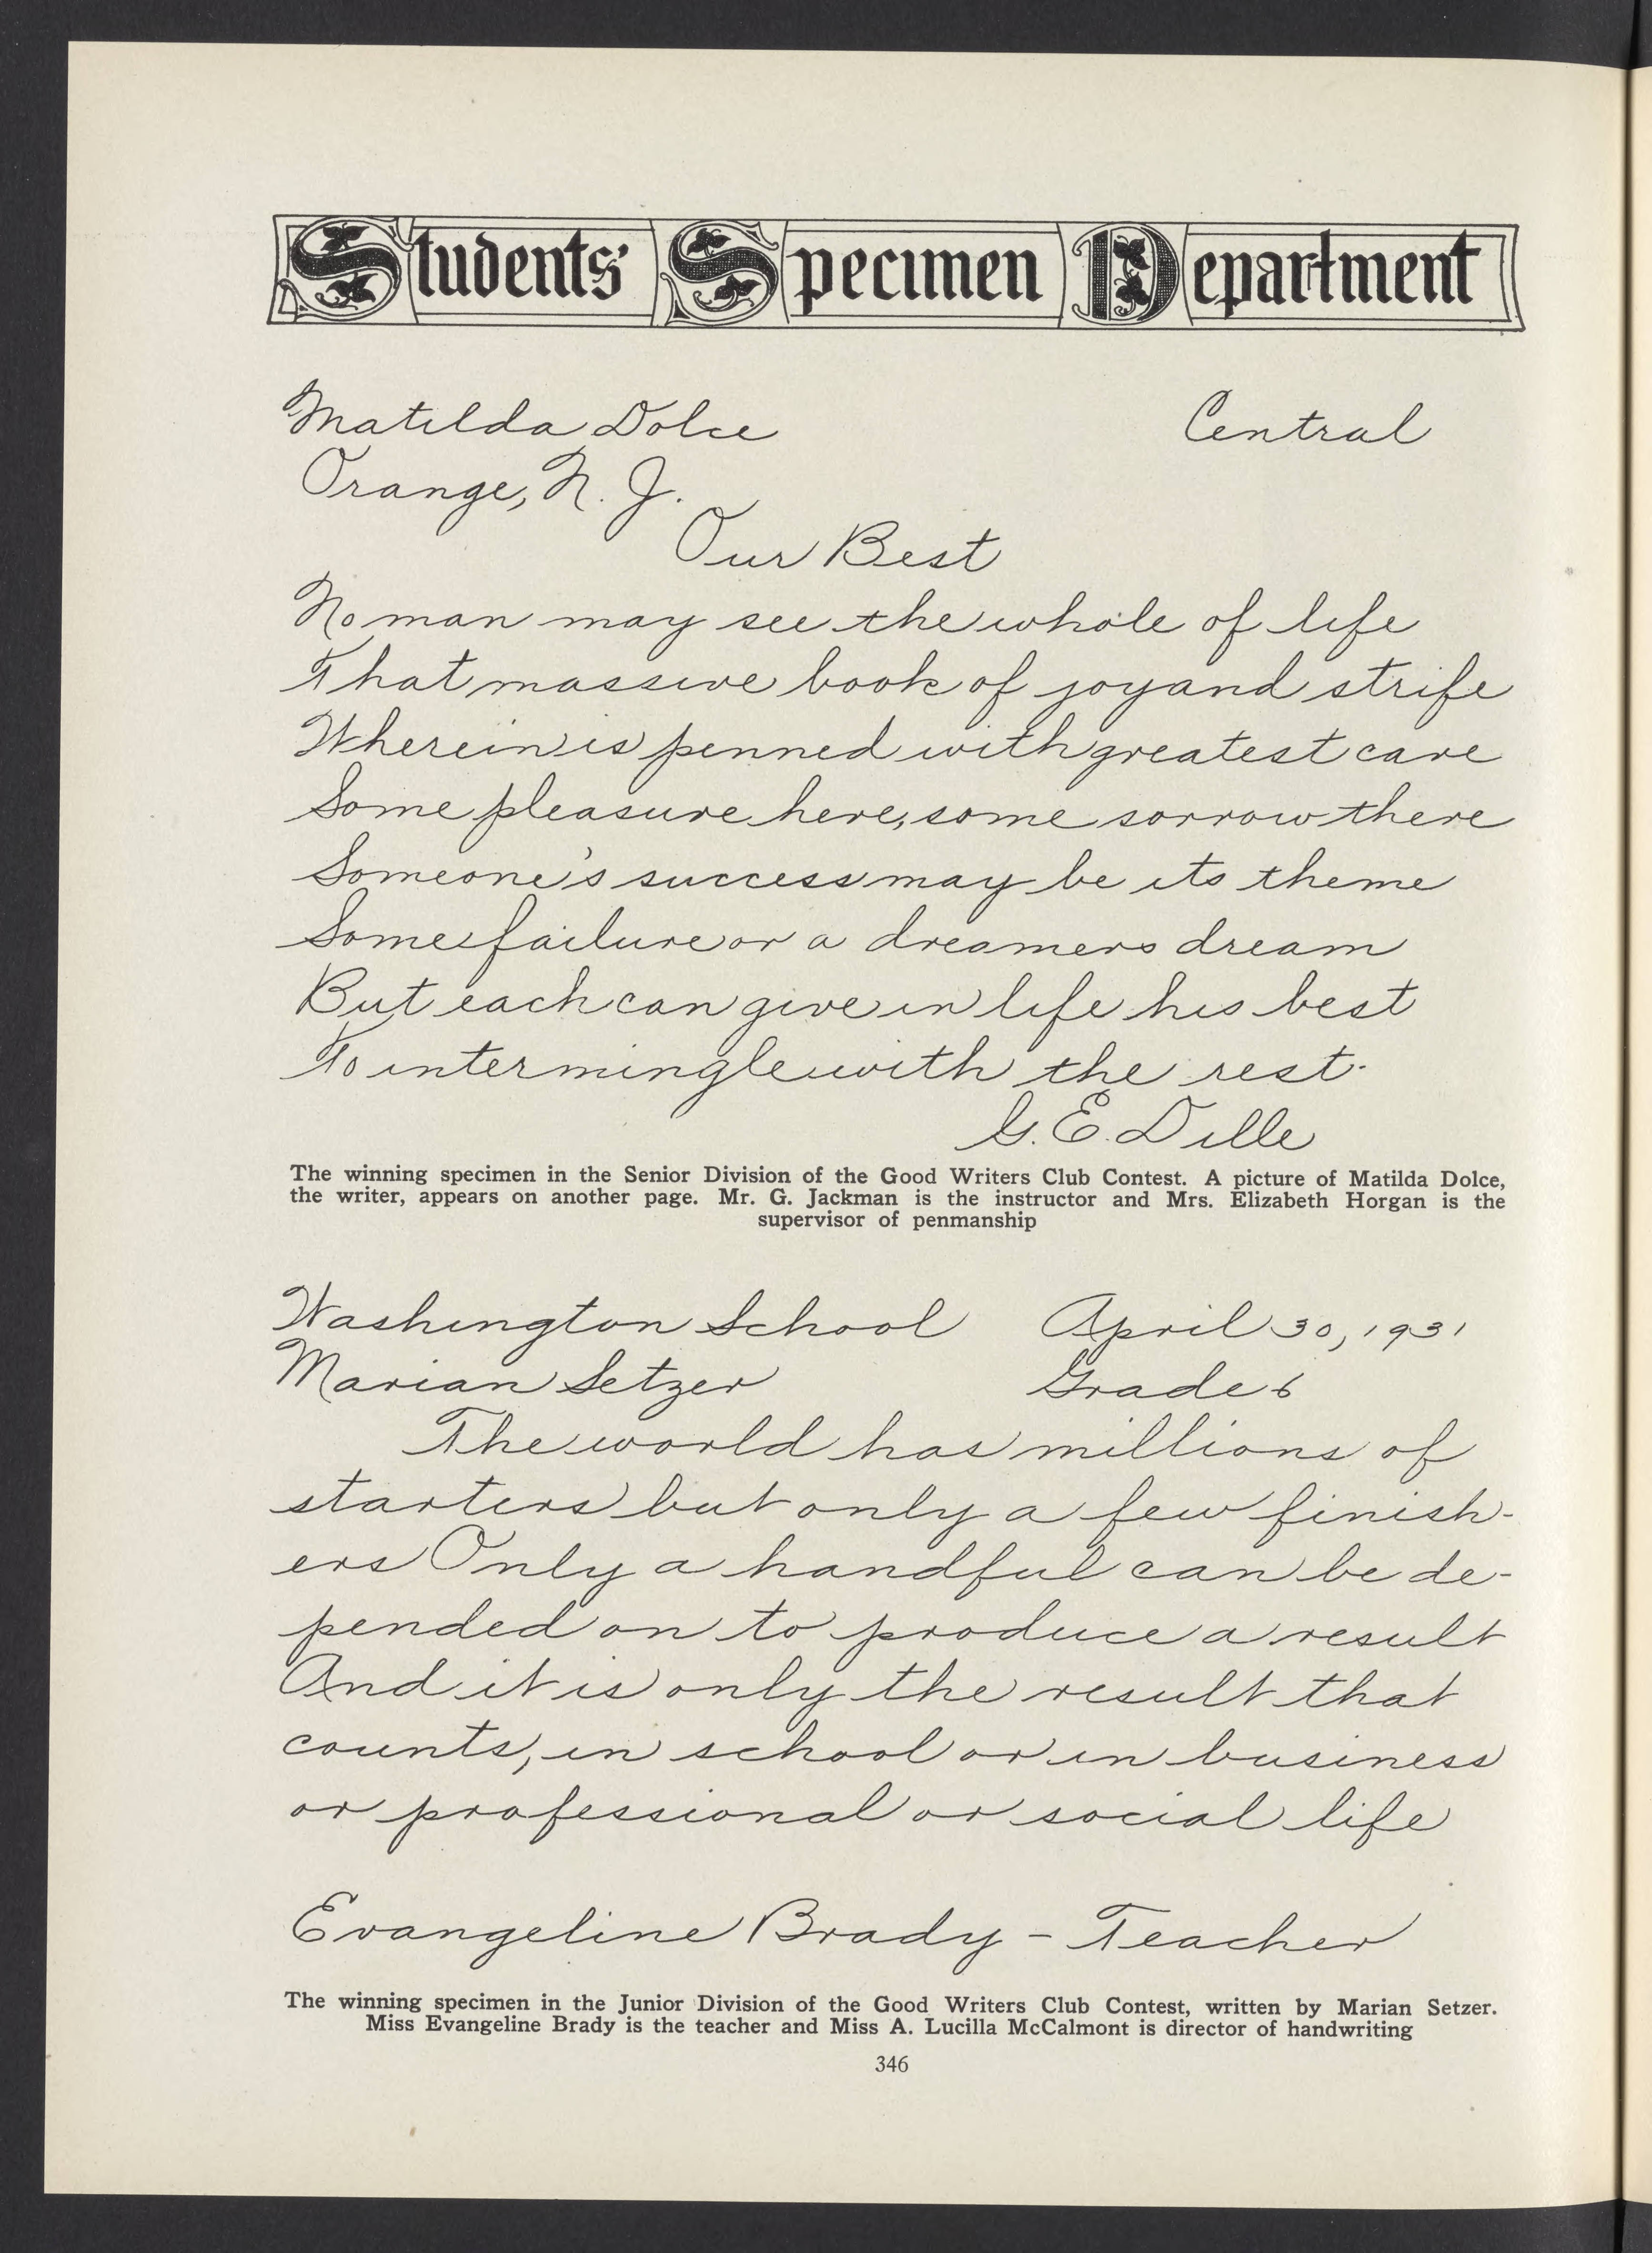 Students' Specimen Department
Matilda Dolce Central
Orange, N. J.
Our Best
No man may see the whole of life
That massive book of joy and strife
Wherein is penned with greatest care
Some pleasure here, some sorrow there
Someone's success may be its theme
Some failure or a dreamers dream
But each can give in life his best
To intermingle with the rest.
G. E. Dille
The winning specimen in the Senior Division of the Good Writers Club Contest. A picture of Matilda Dolce,
the writer, appears on another page. Mr. G. Jackman is the instructor and Mrs. Elizabeth Horgan is the
supervisor of penmanship
Washington School April 30, 1931
Marian Setzer Grade 6
The world has millions of
starters but only a few finish-
ers Only a handful can be de-
pended on to produce a result
And it is only the result that
counts, in school or in business
or professional or social life
Evangeline Brady - Teacher
The winning specimen in the Junior Division of the Good Writers Club Contest, written by Marian Setzer.
Miss Evangeline Brady is the teacher and Miss A. Lucilla McCalmont is director of handwriting
346